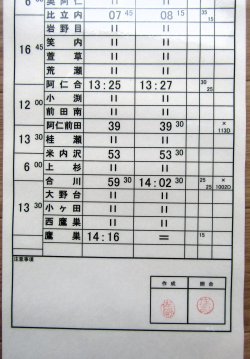 6 00 奥阿仁 〃 〃
比立内 07 45 08 15 35 15
岩野目 〃 〃
16 45 笑内 〃 〃
萱草 〃 〃
荒瀬 〃 〃
阿仁合 13:25 13:27 30 25
12 00 小渕 〃 〃
前田南 〃 〃
阿仁前田 39 39 30 × 113D
13 30 桂瀬 〃 〃
米内沢 53 53 30
6 00 上杉 〃 〃
合川 59 30 14:02 30 25 25 × 1002D
大野台 〃 〃
13 30 小ヶ田 〃 〃
西鷹巣 〃 〃
鷹巣 14:16 = 15
注意事項
作成 照合